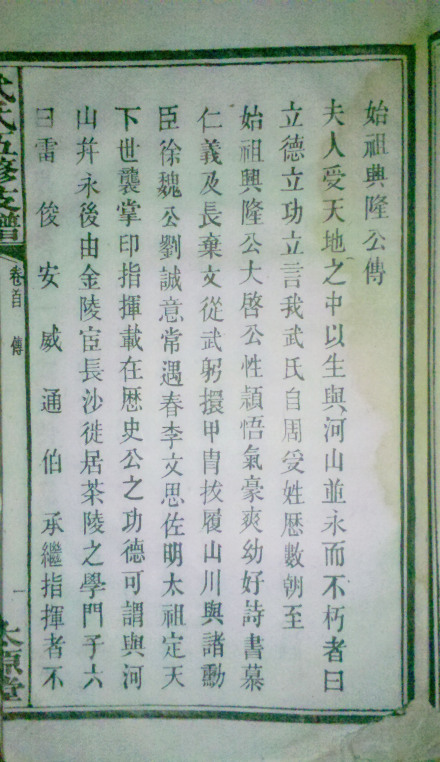 始祖興隆公傳
夫人受天地之中以生與河山並永而不朽者曰
立德立功立言我武氏自周受姓歷數朝至
始祖興隆公大啓公性頴悟氣豪爽幼好詩書慕
仁義及長棄文從武躬擐甲冑拔履山川與諸勳
臣徐魏公劉誠意常遇春李文思佐明太祖定天
下世襲掌印指揮載在歷史公之功德可謂與河
山幷永後由金陵宦長沙徙居茶陵之學門子六
曰雷俊安威通伯承繼指揮者不
氏五修支譜
卷首
傳
一
太原堂